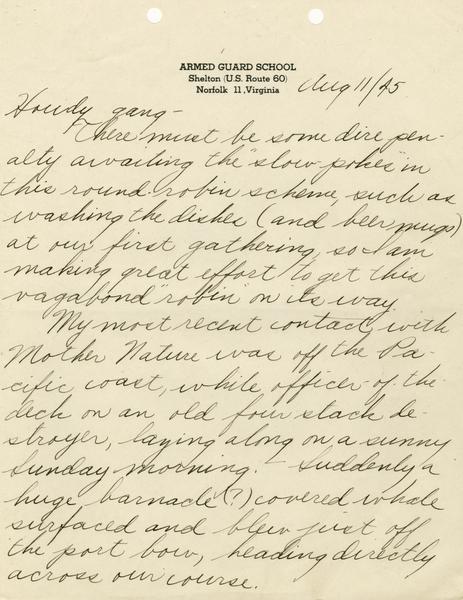 ARMED GUARD SCHOOL
Shelton (U.S. Route 60)
Norfolk 11, Virginia
Aug 11/45
Howdy gang-
There must be some dire pen-
alty awaiting the "slow-pokes" in
this round-robin scheme, such as
washing the dishes (and beer mugs)
at our first gathering, so I am
making great effort to get this
vagabond "robin" on its way.
My most recent contact with
Mother Nature was off the Pa-
cific coast, while officer-of-the-
deck on an old four stack de-
stroyer, laying along on a sunny
Sunday morning. - Suddenly a
huge, barnacle (?) covered whale
surfaced and blew just off
the port bow, heading directly
across our course.